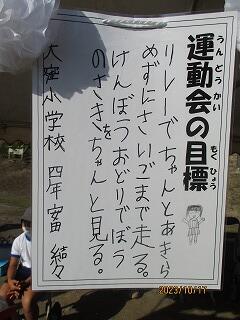 運動会の目標
うんどうかい
もくひょう
リレーでちゃんとあきら
めずにさいごまで走る。
けんぼうおどりでぼう
のさきをちゃんと見る。
大窪小学校 四年
2023/10/17